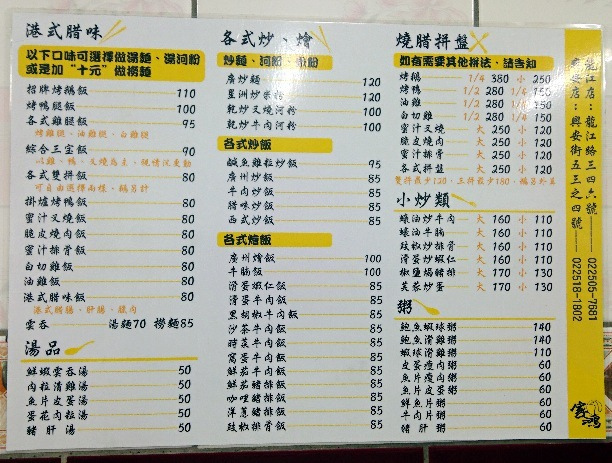 港式腊味
以下口味可選擇做湯麵、湯河粉
或是加“十元”做撈麵
招牌烤鵝飯 110
烤鴨腿飯 100
各式雞腿飯 95
烤雞腿、油雞腿、白雞腿
綜合三宝飯 90
各式雙拼飯 80
掛爐烤鴨飯 80
蜜汁叉燒飯 80
脆皮燒肉飯 80
蜜汁排骨飯 80
白切雞飯 80
油雞飯 80
港式腊味飯 80
港式腊腸、肝腸、腊肉
雲吞 湯麵70 撈麵85
湯品
鮮蝦雲吞湯 50
肉片清雞湯 50
魚片皮蛋湯 50
蛋花肉片湯 50
豬肝湯 50
各式炒、燴
炒麵、河粉、米粉
廣炒麵 120
星洲炒米粉 120
乾炒叉燒河粉 100
乾炒牛肉河粉 100
各式炒飯
鹹魚雞粒炒飯 95
廣州炒飯 85
牛肉炒飯 85
腊味炒飯 85
西式炒飯 85
各式燴飯
廣州燴飯 100
牛腩飯 100
滑蛋蝦仁飯 85
滑蛋牛肉飯 85
黑胡椒牛肉飯 85
沙茶牛肉飯 85
時菜牛肉飯 85
窩蛋牛肉飯 85
鮮茄牛肉飯 85
鮮茄豬排飯 85
咖哩豬排飯 85
洋蔥豬排飯 85
豉椒排骨飯 85
燒腊拼盤
如有需要其他拼法、請告知
烤鵝 1/4 380 小 250
烤鴨 1/2 280 1/4 150
油雞 1/2 280 1/4 150
白切雞 1/2 280 1/4 150
蜜汁叉燒 大 250 小 120
脆皮燒肉 大 250 小 120
蜜汁排骨 大 250 小 120
各式拼盤 大 250 小 120
小炒類
蠔油炒牛肉 大 160 小 110
蠔油牛腩 大 160 小 110
豉椒炒排骨 大 160 小 110
滑蛋炒蝦仁 大 160 小 110
椒鹽焗豬排 大 170 小 130
芙蓉炒蛋 大 170 小 130
粥
鮑魚蝦球粥 140
鮑魚滑雞粥 140
蝦球滑雞粥 110
皮蛋瘦肉粥 60
魚片瘦肉粥 60
魚片皮蛋粥 60
鮮魚片粥 60
牛肉片粥 60
豬肝粥 60
龍江店：龍江路三四六號 022505-7681
興安店：興安街五三之四號 022518-1802